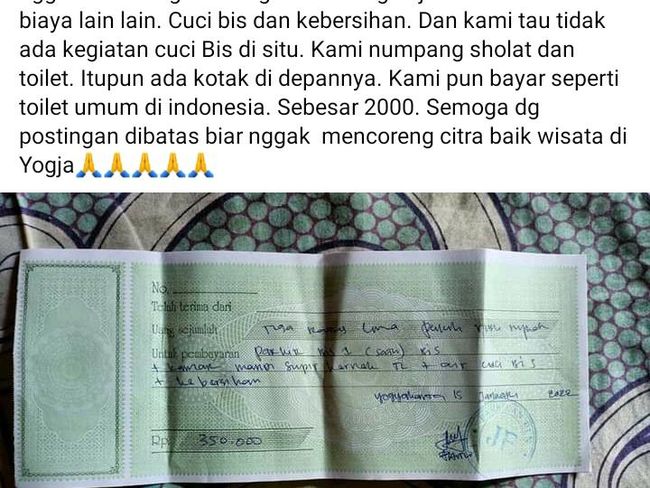 biaya lain lain. Cuci bis dan kebersihan. Dan kami tau tidak
ada kegiatan cuci Bis di situ. Kami numpang sholat dan
toilet. Itupun ada kotak di depannya. Kami pun bayar seperti
toilet umum di indonesia. Sebesar 2000. Semoga dg
postingan dibatas biar nggak mencoreng citra baik wisata di
Yogja🙏🙏🙏🙏🙏
No.
Telah terima dari
Uang sejumlah Tiga Ratus Lima puluh ribu rupiah
Untuk pembayaran Parkir bis 1 (satu) Bis
+ kamar mandi Supir kernet TL + air cuci Bis
+ kebersihan
Yogyakarta 15 Januari 2022
Rp 350.000
JF